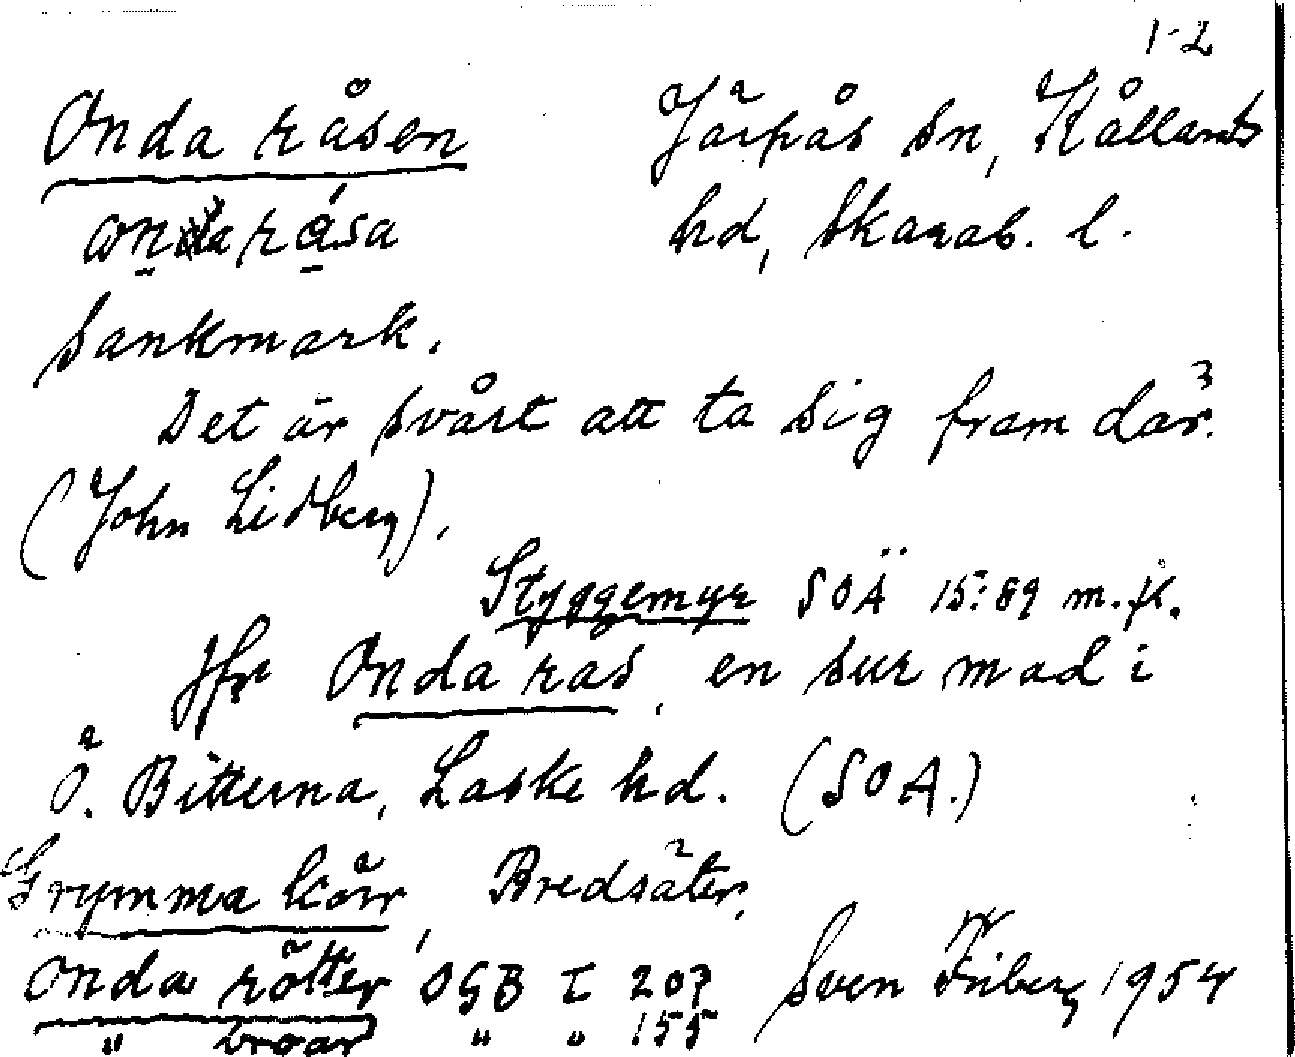 1-2
Onda råsen Järpås sn, Kållands
hd, Skarab. l.
Sankmark.
Det är svårt att ta sig fram där.
(John Lidberg).
Styggemyr SOÄ 15:89 m.fl.
Jfr Onda ras, en sur mad i
Ö. Bitterna, Laske hd. (SOA.)
Grymma körr, Bredsäter,
Onda rötter OGB I 207 Sven Friberg 1954
" broar " " 155